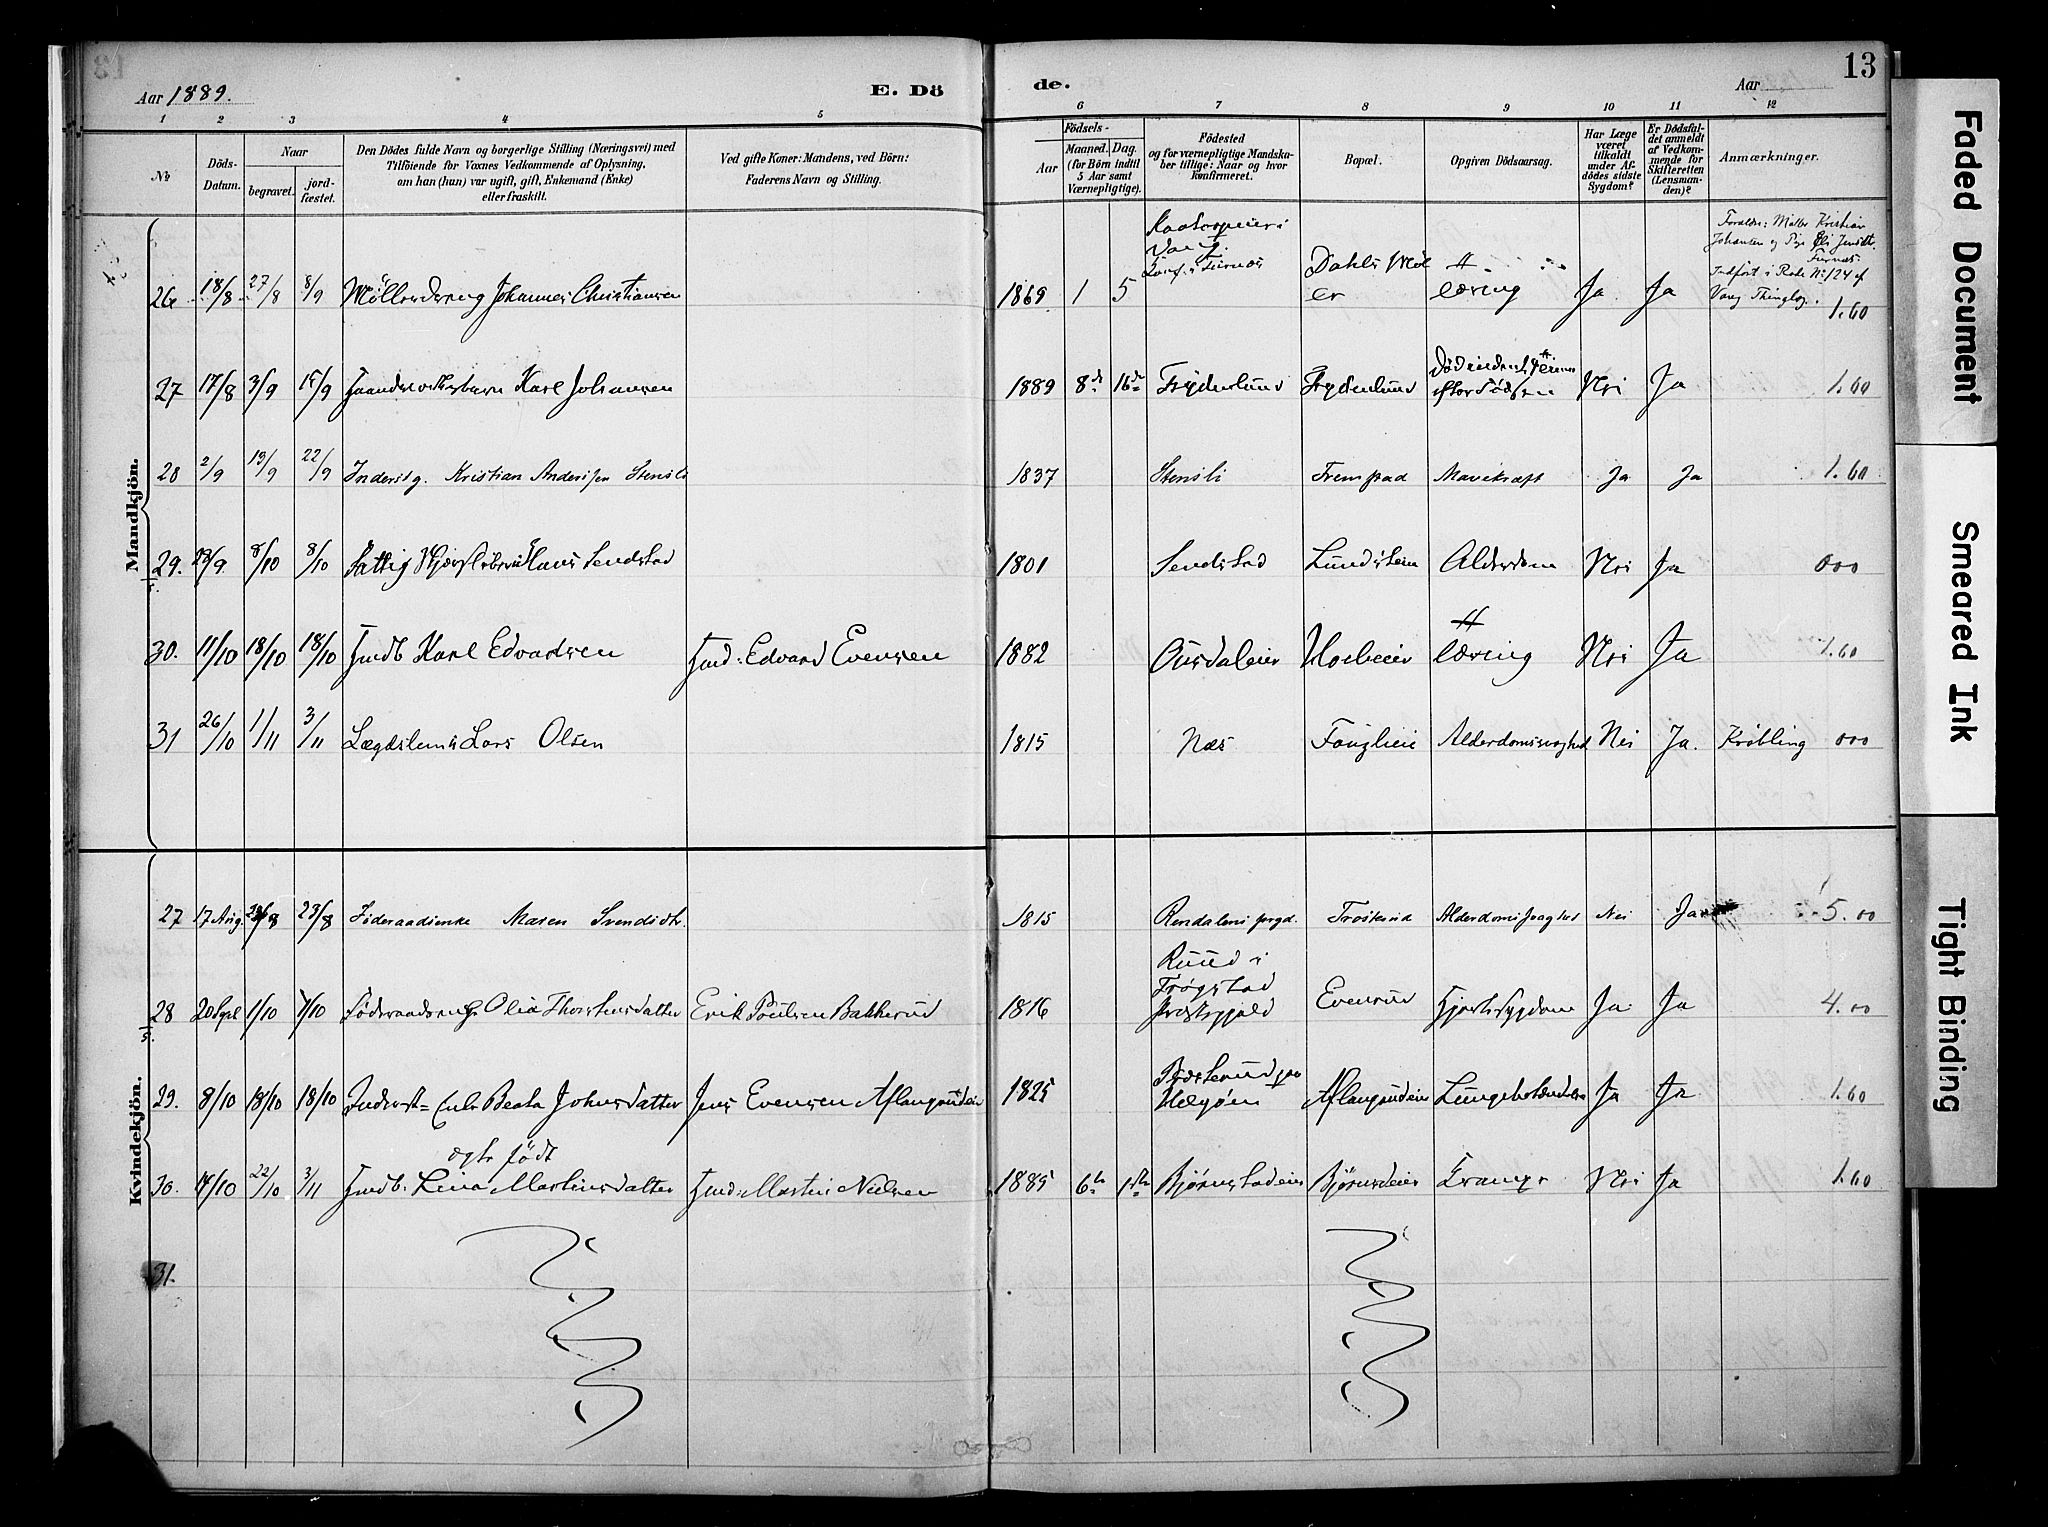 13
Aar 1889.
E. Dö
de.
Aar
1 2 3 4 5 6 7 8 9 10 11 12
No
Döds-Datum.
Naar
begravet.
jord-fæstet.
Den Dödes fulde Navn og borgerlige Stilling (Næringsvei) med
Tilföiende for Voxnes Vedkommende af Oplysning,
om han (hun) var ugift, gift, Enkemand (Enke)
eller fraskilt.
Ved gifte Koner: Mandens, ved Börn:
Faderens Navn og Stilling.
Födsels-
Aar
Maaned. Dag.
(for Börn indtil
5 Aar samt
Værnepligtige).
Födested
og for værnepligtige Mandska-
ber tillige: Naar og hvor
konfirmeret.
Bopæl.
Opgiven Dödsaarsag.
Har Læge
været
tilkaldt
under Af-
dödes sidste
Sygdom?
Er Dödsfal-
det anmeldt
af Vedkom-
mende for
Skifteretten
(Lensman-
den)?
Anmærkninger.
Mandkjön.
26 18/8 27/8 8/9 Møllerdreng Johannes Christiansen 1869 1 5 Vang Furnes Dahls Møl
er Tæring Ja Ja Forældre: Møller Kristian
Johansen og Pige
Furnes
Indført i No 124 af
Vang Thinglag. 1.60
27 17/8 3/9 15/9 Karl Johansen 1889 8de 16de Frydenlund Frydenlund Nei Ja 1.60
28 2/9 19/9 22/9 Inderstg. Kristian Andersen Stensli 1837 Stensli Fremstad Mavekræft Ja Ja 1.60
29. 28/9 8/10 8/10 Fattig Hans Sendstad 1801 Sendstad Lundstein Alderdom Nei Ja 000
30. 11/10 18/10 18/10 Indb Karl Edvardsen Ind: Edvard Evensen 1882 Tæring Nei Ja 1.60
31 26/10 1/11 3/11 Lægdslem Lars Olsen 1815 Næs Fanglieie Alderdomssvaghed Nei Ja. Krøbling 000
Kvindekjön.
27 17 Aug. 23/8 Føderaadsenke Maren Svendsdtr. 1815 Rendalens prgd. Troskerud Alderdomssvaghed Nei Ja 5.00
28 20 Sept 1/10 1/10 Olia Thorstensdatter Erik Poulsen Bakkerud 1816 Ruud i
Trøgstad
Præstegjeld Evenrud Hjertesygdom Ja Ja 4.00
29. 8/10 18/10 18/10 Inderst= Enke Beata Johnsdatter Jens Evensen Aflangrudeie 1825 Helgøen Aflangrudeie Lungebetændelse Ja Ja 1.60
30. 22/10 3/11 Indb. Lina Martinsdatter
ægte født Ind: Martin Nielsen 1885 6te 1ste Bjørnstadeie Bjørnsdeie Krampe Nei Ja 1.60
31.
Faded Document
Smeared Ink
Tight Binding